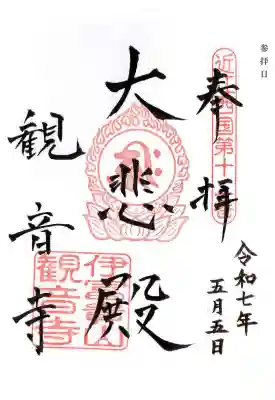 参拝日
奉拝
令和七年
五月五日
大悲殿
観音寺
伊富貴山
観音寺